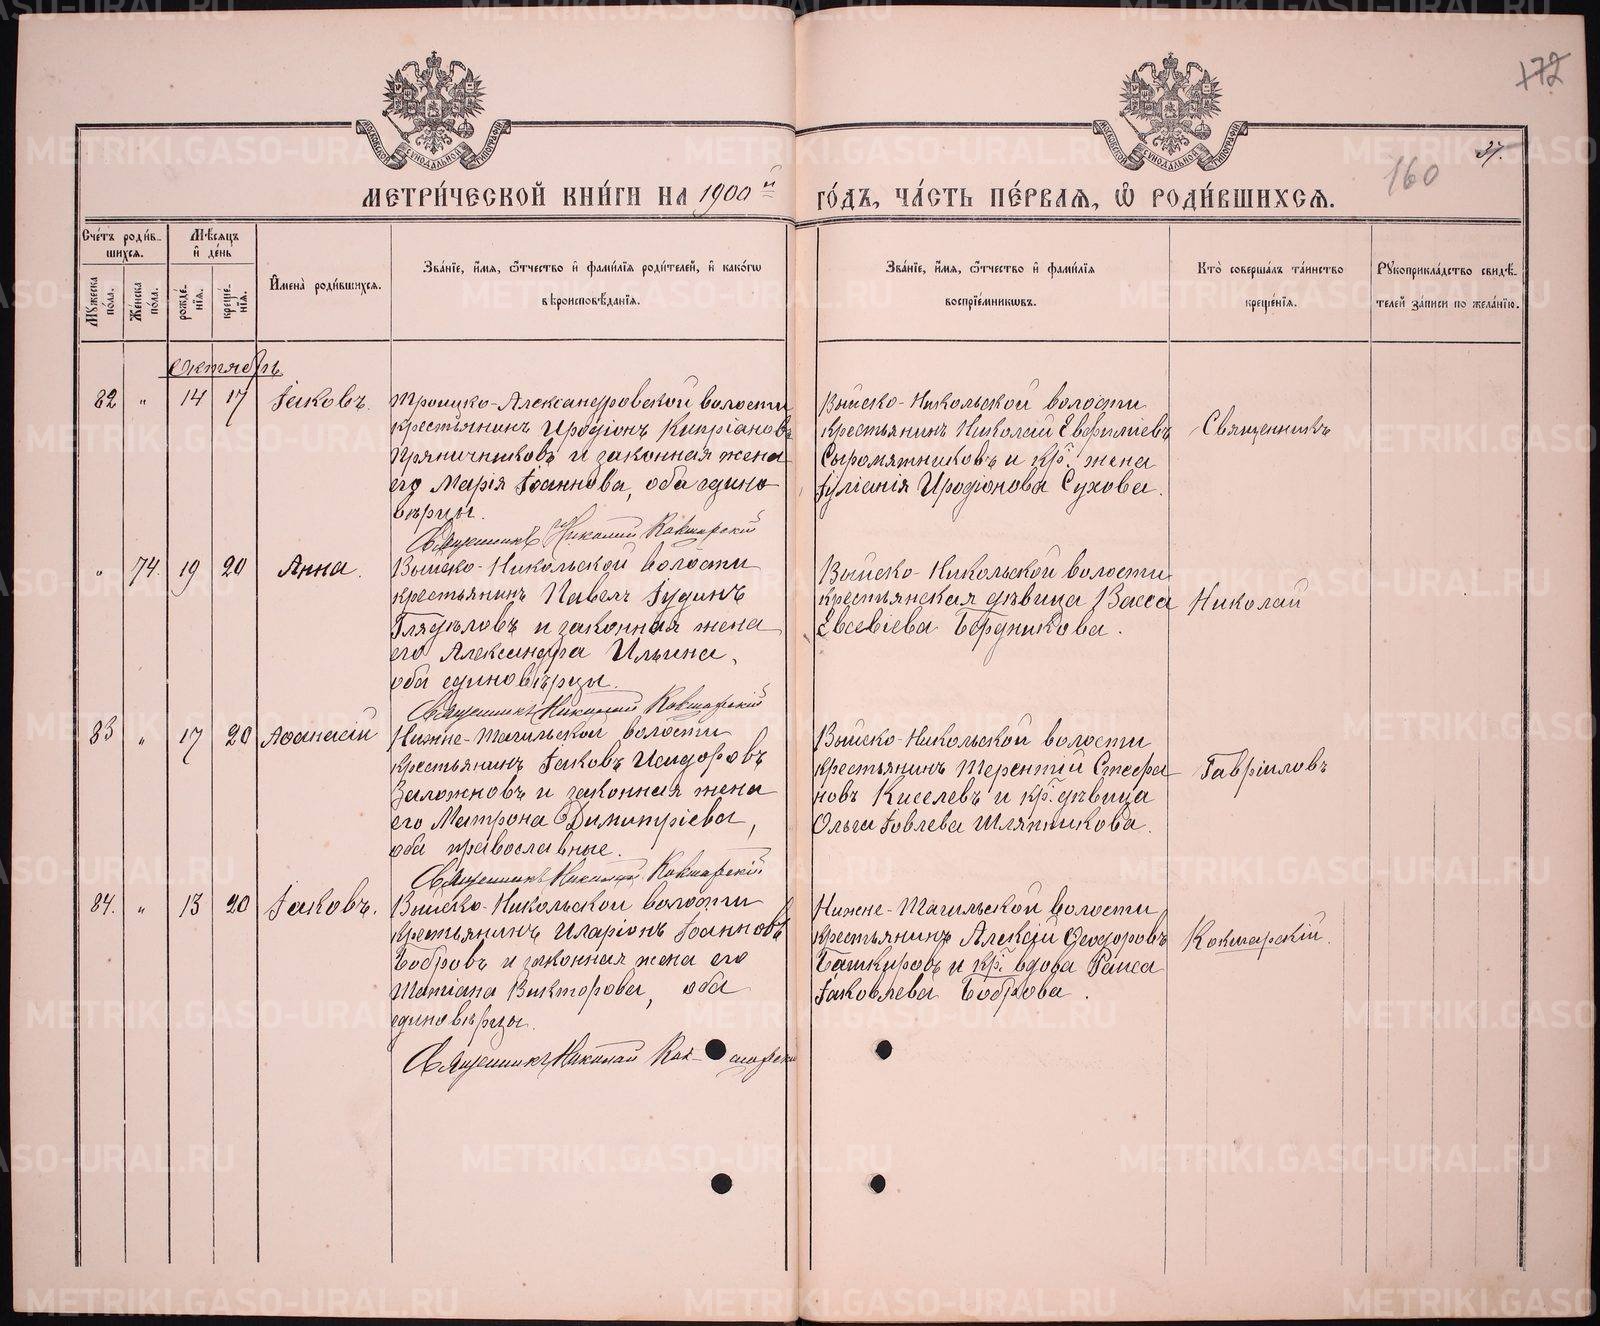 172
37.
160
МЕТРИ́ЧЕСКОЙ КНИ́ГИ НА 1900й
ГО́ДЪ, ЧА́СТЬ ПЕ́РВАѦ, Ѽ РОДИ́ВШИХСѦ.
Сче́тъ роди́в-
шихсѧ.
Мꙋжеска по́ла.
Же́нска по́ла.
Мѣ́сѧцъ
и҆ де́нь
рожде́нїѧ.
креще́нїѧ.
И҆мена̀ роди́вшихсѧ.
Зва́нїе, и҆́мѧ, ѻ҆́тчество и҆ фами́лїѧ роди́телей, и҆ како́гѡ
вѣроисповѣ́данїѧ.
Зва́нїе, и҆́мѧ, ѻ҆́тчество и҆ фами́лїѧ
воспрїе́мникѡвъ.
Кто̀ соверша́лъ та́инство
креще́нїѧ.
Рꙋкоприкла́дство свидѣ́-
телей за́писи по жела́нїю.
Октябрь
82 " 14 17 Іаковъ.
Троицко-Александровской волости
крестьянинъ Иродіонъ Кипріановъ
Пряничниковъ и законная жена
его Марія Іоаннова, оба едино-
вѣрцы.
Священникъ Николай Кокшарскій
Выйско-Никольской волости
крестьянинъ Николай Евфиміевъ
Сыромятниковъ и кр. жена
Іуліанія Иродіонова Сухова.
Священникъ
" 74. 19 20 Анна.
Выйско-Никольской волости
крестьянинъ Павелъ Іудинъ
Глядѣловъ и законная жена
его Александра Ильина,
оба единовѣрцы.
Священникъ Николай Кокшарскій
Выйско-Никольской волости
крестьянская дѣвица Васса
Евсевіева Бердникова.
Николай
83 " 17 20 Аѳанасій
Нижне-Тагильской волости
крестьянинъ Іаковъ Исидоровъ
Заложновъ и законная жена
его Матрона Димитріева,
оба православные.
Священникъ Николай Кокшарскій
Выйско-Никольской волости
крестьянинъ Терентій Стефа
новъ Киселевъ и кр. дѣвица
Ольга Іовлева Шляпникова.
Гавріиловъ
84. " 13 20 Іаковъ.
Выйско-Никольской волости
крестьянинъ Иларіонъ Іоанновъ
Бобровъ и законная жена его
Татіана Викторова, оба
единовѣрцы.
Священникъ Николай Кокшарскій
Нижне-Тагильской волости
крестьянинъ Алексій Ѳеодоровъ
Башкировъ и кр. вдова Раиса
Іаковлева Боброва.
Кокшарскій.
METRIKI.GASO-URAL.RU